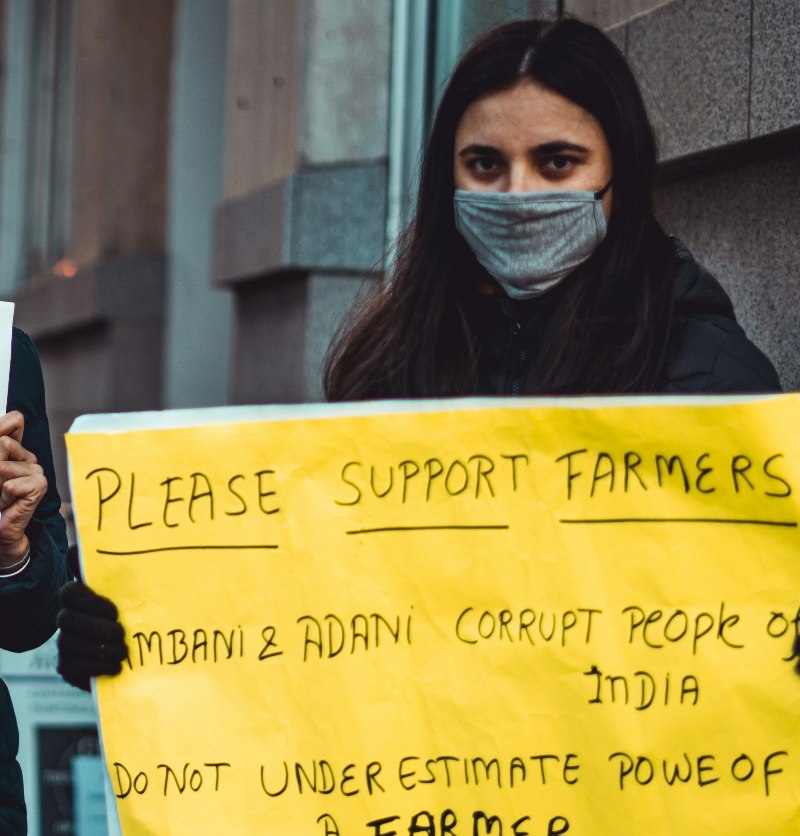 PLEASE SUPPORT FARMERS
AMBANI & ADANI CORRUPT PEOPLE OF
INDIA
DO NOT UNDERESTIMATE POWE OF
A FARMER